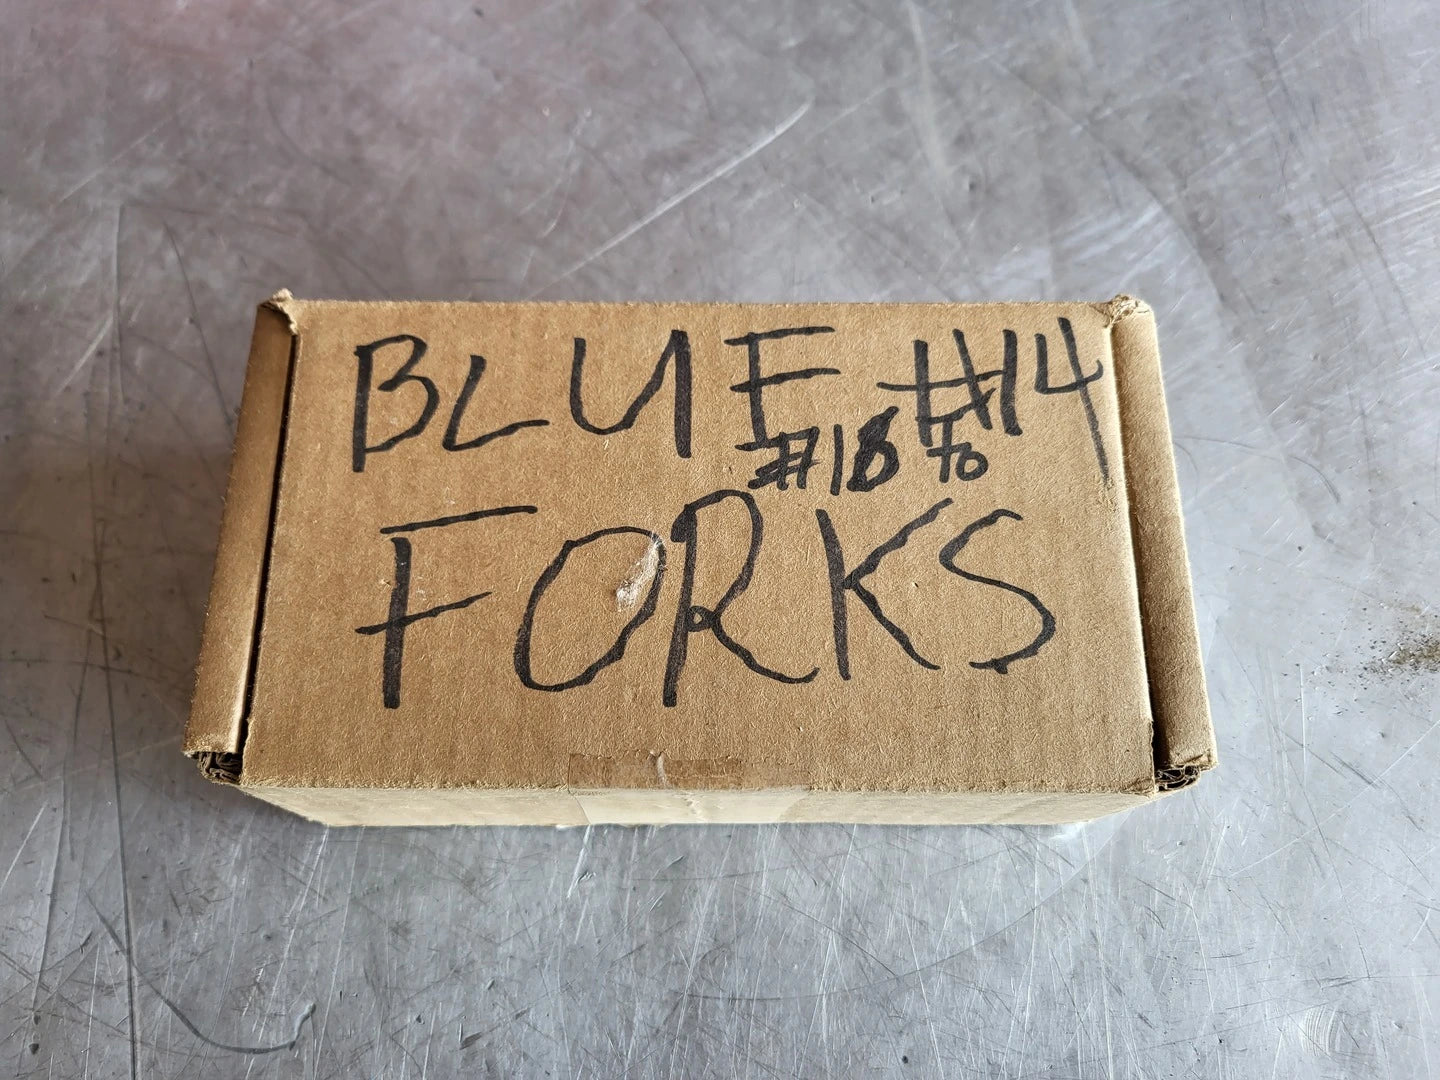 BLUE #14
#16 to
FORKS